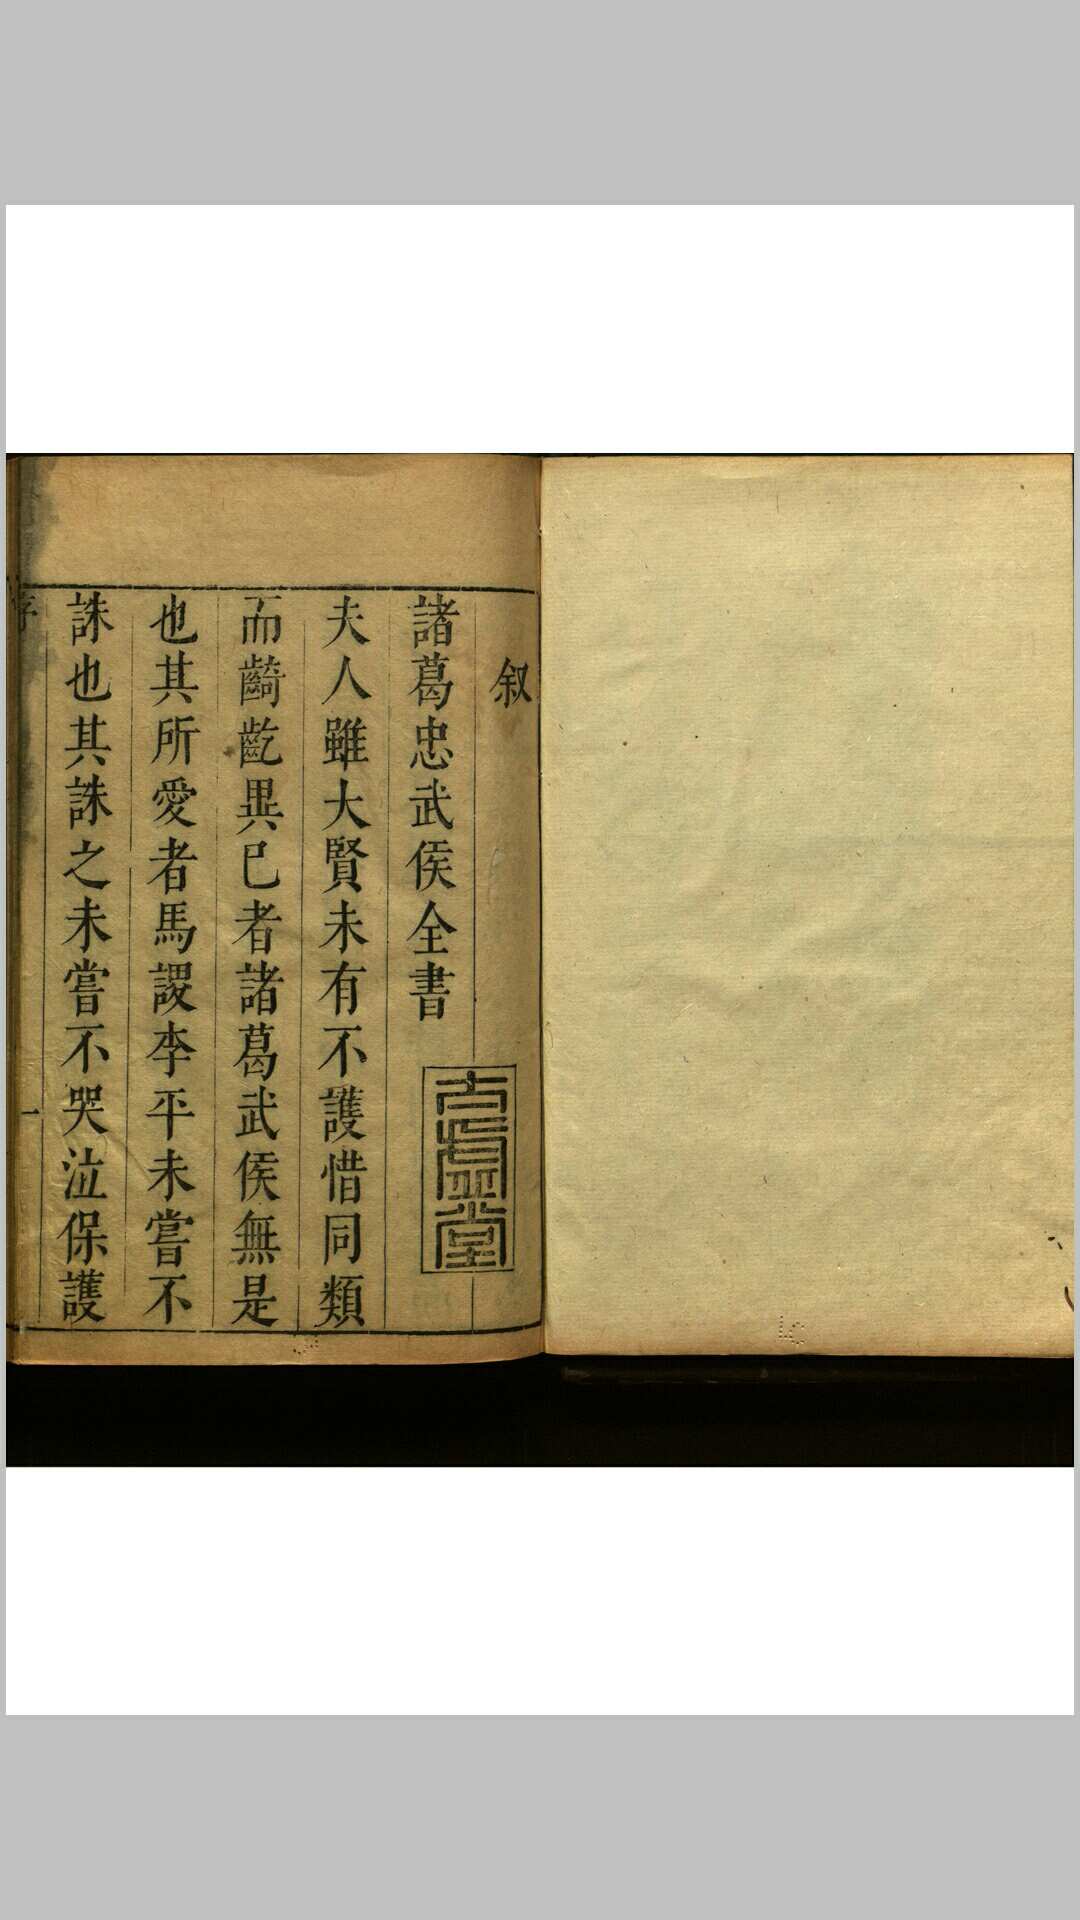 叙
諸葛忠武侯全書
夫人雖大賢未有不護惜同類
而齮齕異已者諸葛武侯無是
也其所愛者馬謖李平未嘗不
誅也其誅之未嘗不哭泣保護
序
一